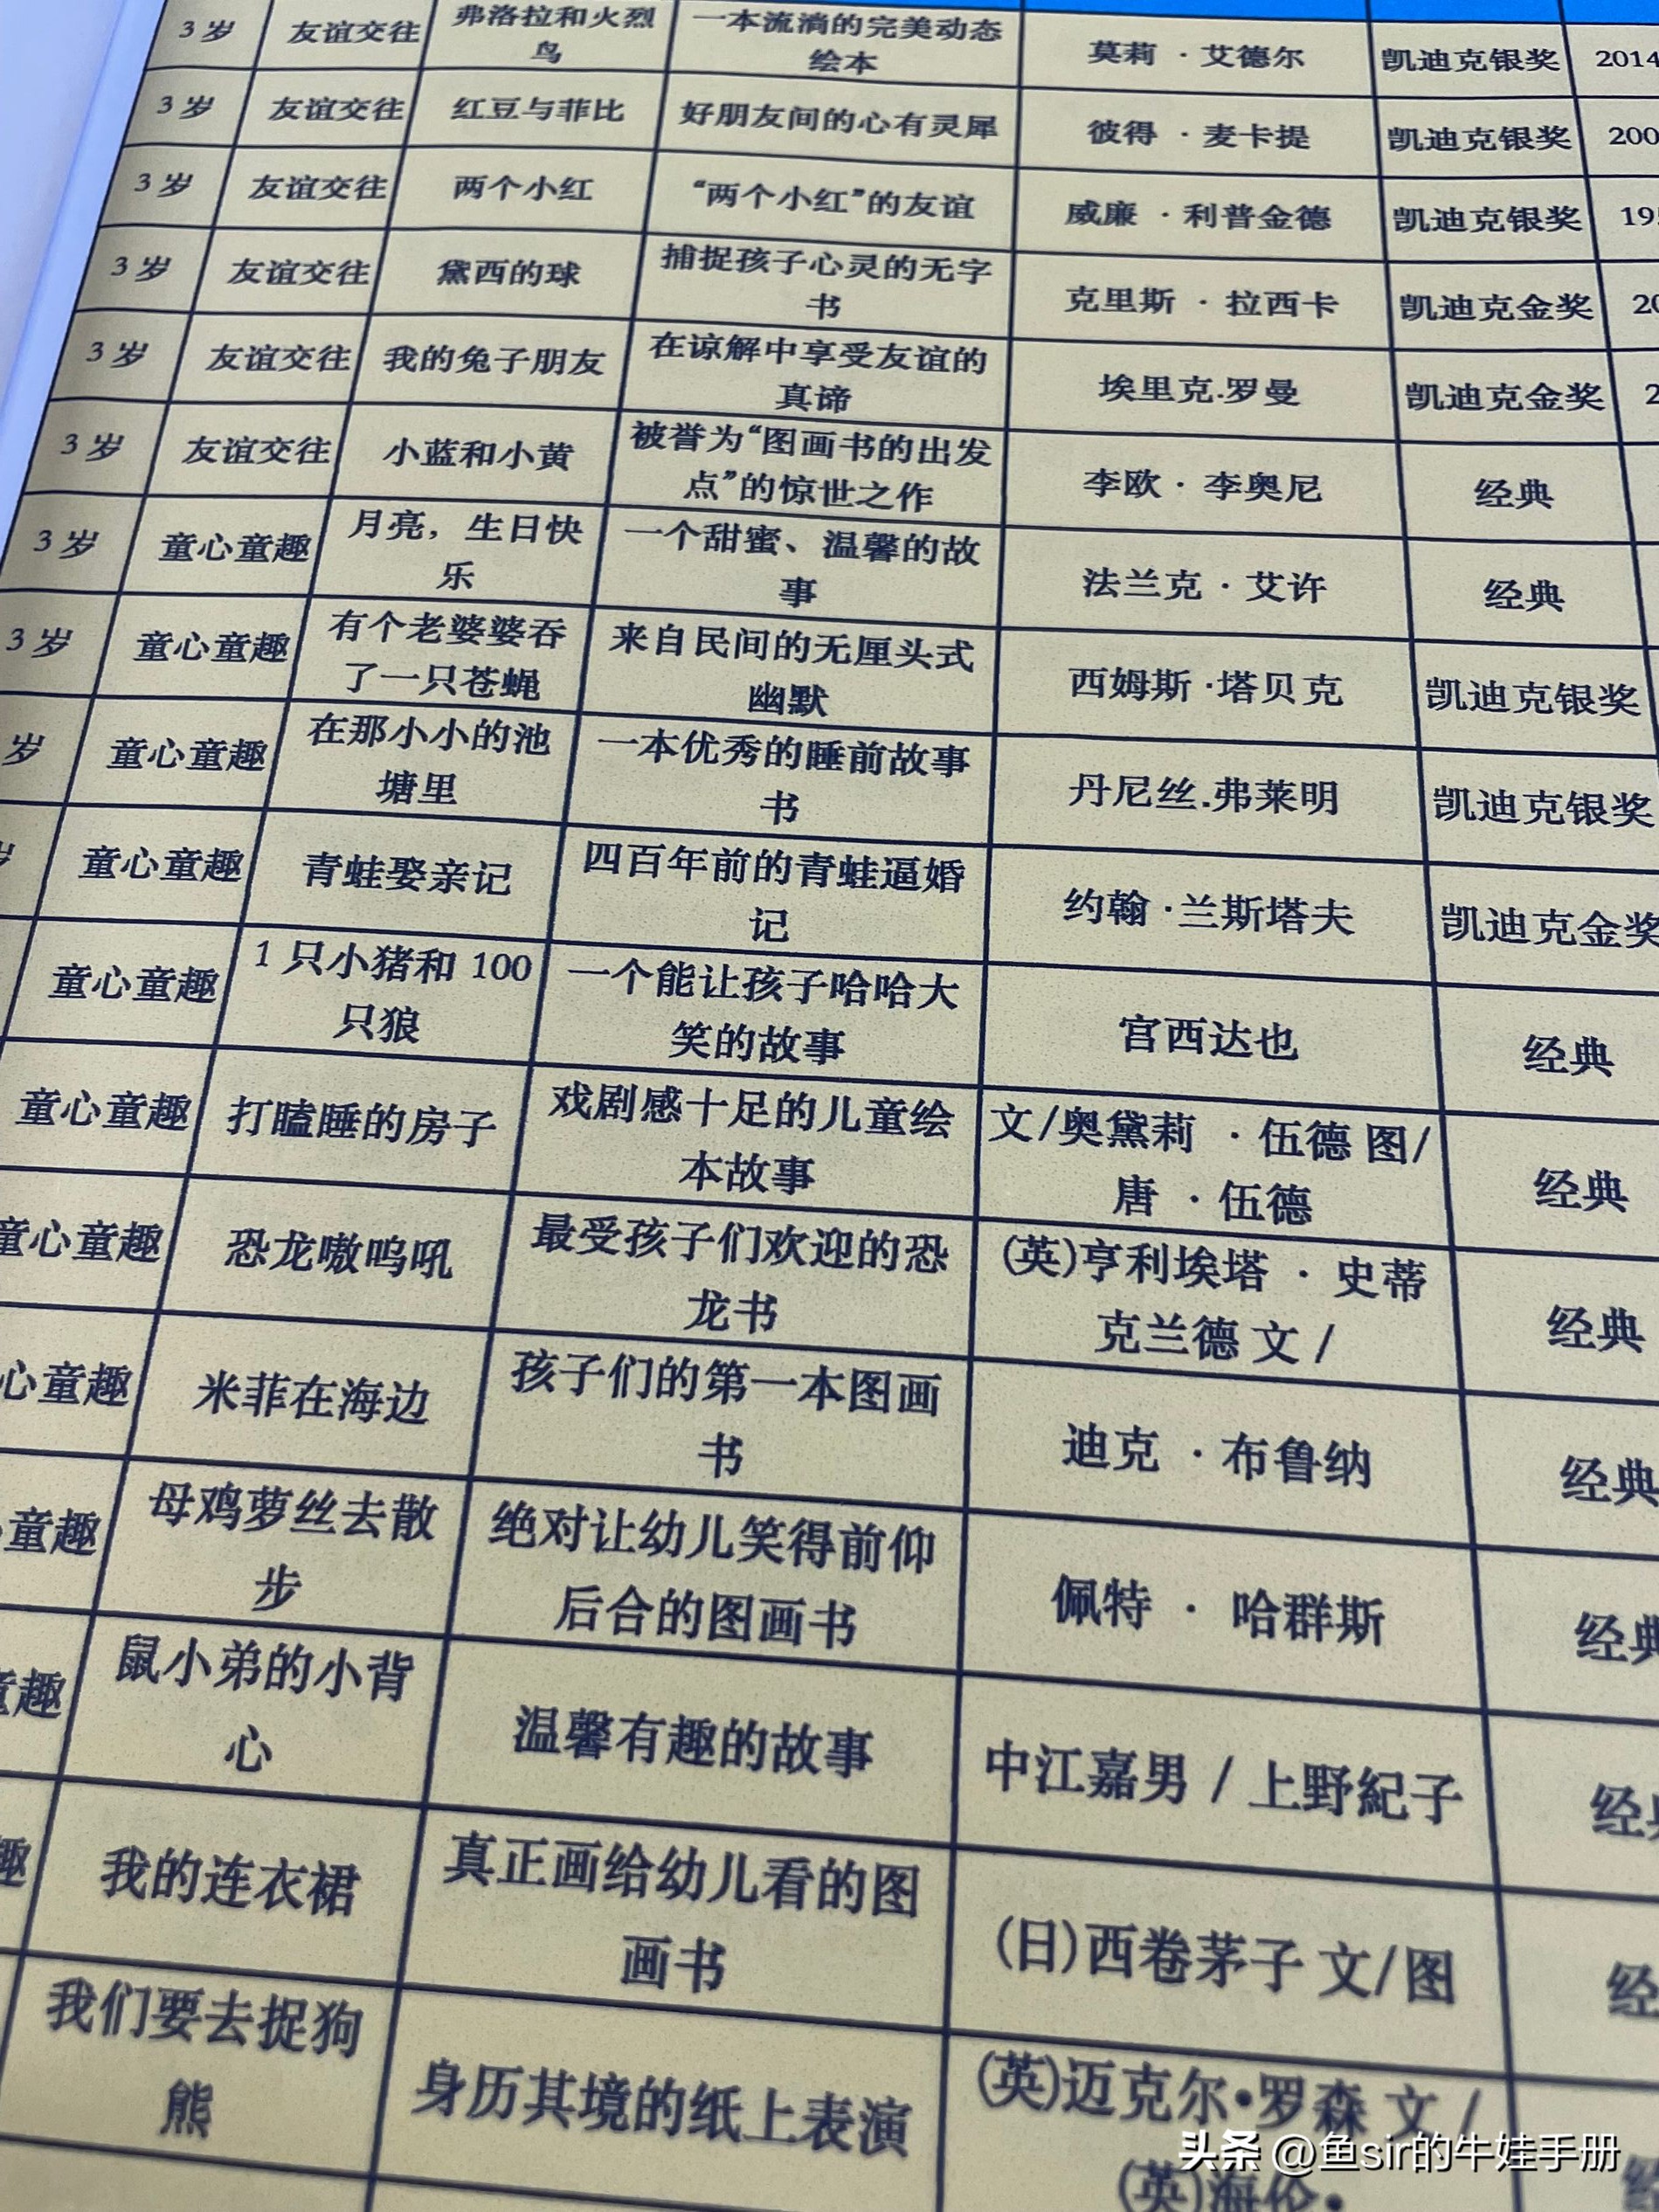 3 岁 友谊交往 弗洛拉和火烈鸟 一本流淌的完美动态绘本 莫莉 · 艾德尔 凯迪克银奖 2014
3 岁 友谊交往 红豆与菲比 好朋友间的心有灵犀 彼得 · 麦卡提 凯迪克银奖 200
3 岁 友谊交往 两个小红 “两个小红”的友谊 威廉 · 利普金德 凯迪克银奖 19
3 岁 友谊交往 黛西的球 捕捉孩子心灵的无字书 克里斯 · 拉西卡 凯迪克金奖 20
3 岁 友谊交往 我的兔子朋友 在谅解中享受友谊的真谛 埃里克.罗曼 凯迪克金奖 2
3 岁 友谊交往 小蓝和小黄 被誉为“图画书的出发点”的惊世之作 李欧 · 李奥尼 经典
3 岁 童心童趣 月亮，生日快乐 一个甜蜜、温馨的故事 法兰克 · 艾许 经典
3 岁 童心童趣 有个老婆婆吞了一只苍蝇 来自民间的无厘头式幽默 西姆斯 ·塔贝克 凯迪克银奖
岁 童心童趣 在那小小的池塘里 一本优秀的睡前故事书 丹尼丝.弗莱明 凯迪克银奖
童心童趣 青蛙娶亲记 四百年前的青蛙逼婚记 约翰 ·兰斯塔夫 凯迪克金奖
童心童趣 1 只小猪和 100 只狼 一个能让孩子哈哈大笑的故事 宫西达也 经典
童心童趣 打瞌睡的房子 戏剧感十足的儿童绘本故事 文/奥黛莉 · 伍德 图/唐 · 伍德 经典
童心童趣 恐龙嗷呜吼 最受孩子们欢迎的恐龙书 (英)亨利埃塔 · 史蒂克兰德 文 / 经典
心童趣 米菲在海边 孩子们的第一本图画书 迪克 · 布鲁纳 经典
童趣 母鸡萝丝去散步 绝对让幼儿笑得前仰后合的图画书 佩特 · 哈群斯 经典
童趣 鼠小弟的小背心 温馨有趣的故事 中江嘉男 / 上野紀子 经典
趣 我的连衣裙 真正画给幼儿看的图画书 (日)西卷茅子 文/图 经
我们要去捉狗熊 身历其境的纸上表演 (英)迈克尔•罗森 文 / (英)海伦•
头条 @鱼sir的牛娃手册